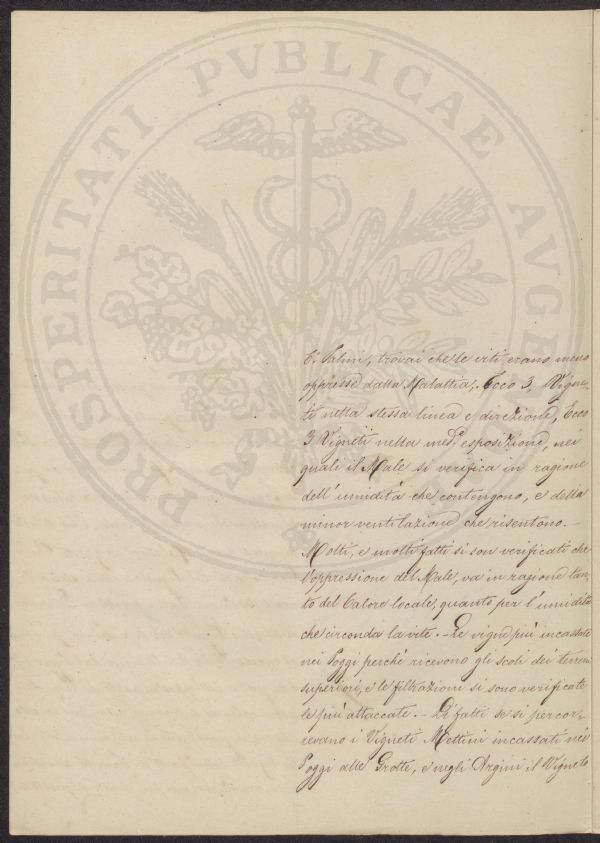 PROSPERITATI PVBLICAE AVGENDAE
Salini, trovai che le viti erano meno
oppresse dalla Malattia; Ecco 3, Vigne-
ti nella stessa linea e direzione, Ecco
3 Vigneti nella med.ª esposizione, nei
quali il Male si verifica in ragione
dell'umidità che contengono, e della
minor ventilazione che risentono. -
Molti, e molti fatti si son verificati che
l'oppressione del Male, va in ragione tan-
to del Calore locale, quanto per l'umidità
che circonda la vite. - Le vigne più incassate
nei Poggi perché ricevono gli scoli dei terreni
superiori, e le filtrazioni si sono verificate
le più attaccate. - Di fatti se si percor-
revano i Vigneti Mettini incassati nei
Poggi alle Grotte, e negli Argini il Vigneto